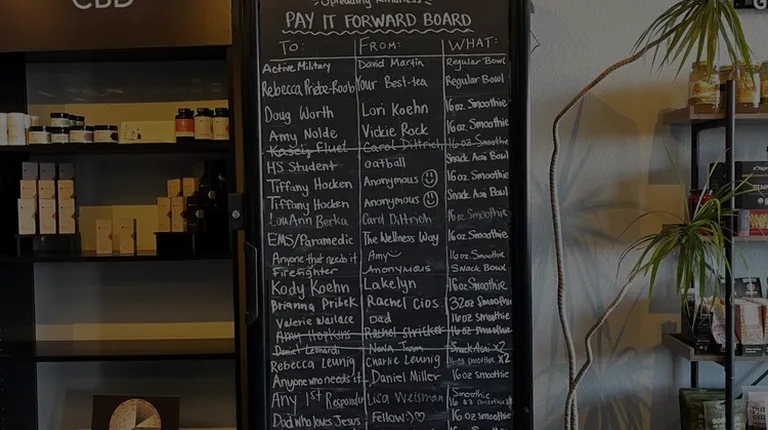 CBD
Spreading Kindness
PAY IT FORWARD BOARD
TO: FROM: WHAT:
Active Military David Martin Regular Bowl
Rebecca Your Best-tea Regular Bowl
Doug Worth Lori Koehn 16oz. Smoothie
Amy Nolde Vickie Rock 16oz. Smoothie
Kasey Fluel Carol Dittrich 16oz. Smoothie
HS Student oatball Snack Acai Bowl
Tiffany Hocken Anonymous ☺ 16oz. Smoothie
Tiffany Hocken Anonymous ☺ Snack Acai Bowl
LouAnn Berka Carol Dittrich 16oz. Smoothie
EMS/Paramedic The Wellness Way 16oz. Smoothie
Anyone that needs it Amy 16oz. Smoothie
Firefighter Anonymous Snack Bowl
Kody Koehn Lakelyn 16oz Smoothie
Brianna Pribek Rachel Cios 32oz Smoothie
Valerie Wallace Dad 16oz Smoothie
Amy Hopkins Rachel Stricker 16oz Smoothie
Daniel Leonardi Nova Team Snack Acai x2
Rebecca Leunig Charlie Leunig 16oz Smoothie x2
Anyone who needs it Daniel Miller 16oz Smoothie
Any 1st Responder Lisa Weisman Smoothie
16 oz smoothie
Dad who loves Jesus Fellow :) ♡ 16oz Smoothie